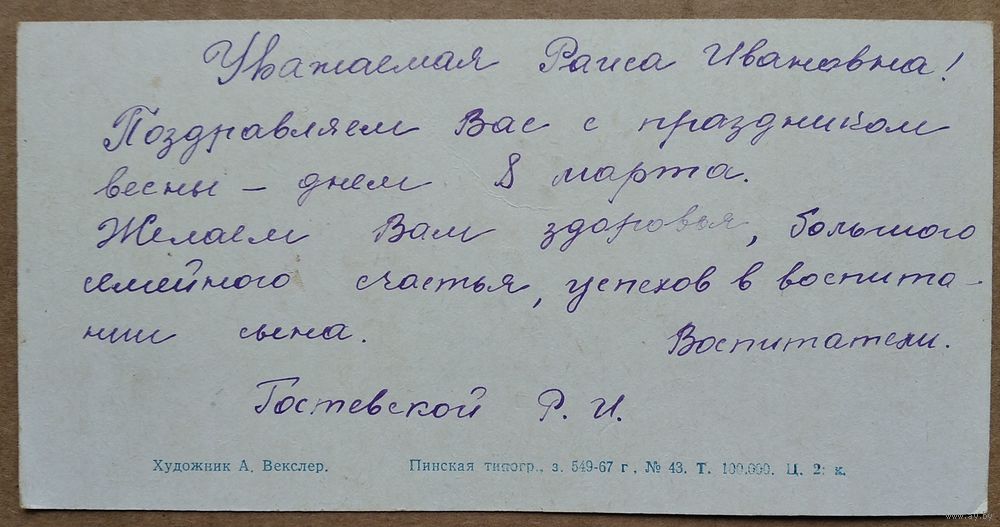 Уважаемая Раиса Ивановна!
Поздравляем Вас с праздником
весны – днем 8 марта.
Желаем Вам здоровья, большого
семейного счастья, успехов в воспита-
нии сына.
Воспитатели.
Гостевской Р. И.
Художник А. Векслер. Пинская типогр., з. 549-67 г., № 43. Т. 100.000. Ц. 2 к.
www.ay.by